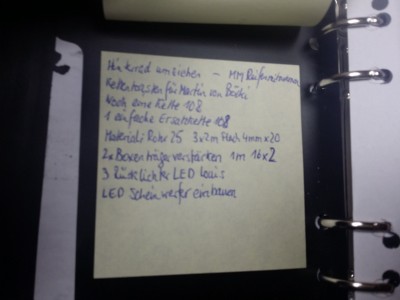 Hinterrad umziehen – MM Reifen
Kettenkasten für Martin von Böski
Noch eine Kette 108
1 einfache Ersatzkette 108
Material: Rohr 25 3x2m Flach 4mm x 20
2x Boxenträger verstärken 1m 16x2
3 Rücklichter LED Louis
LED Scheinwerfer einbauen